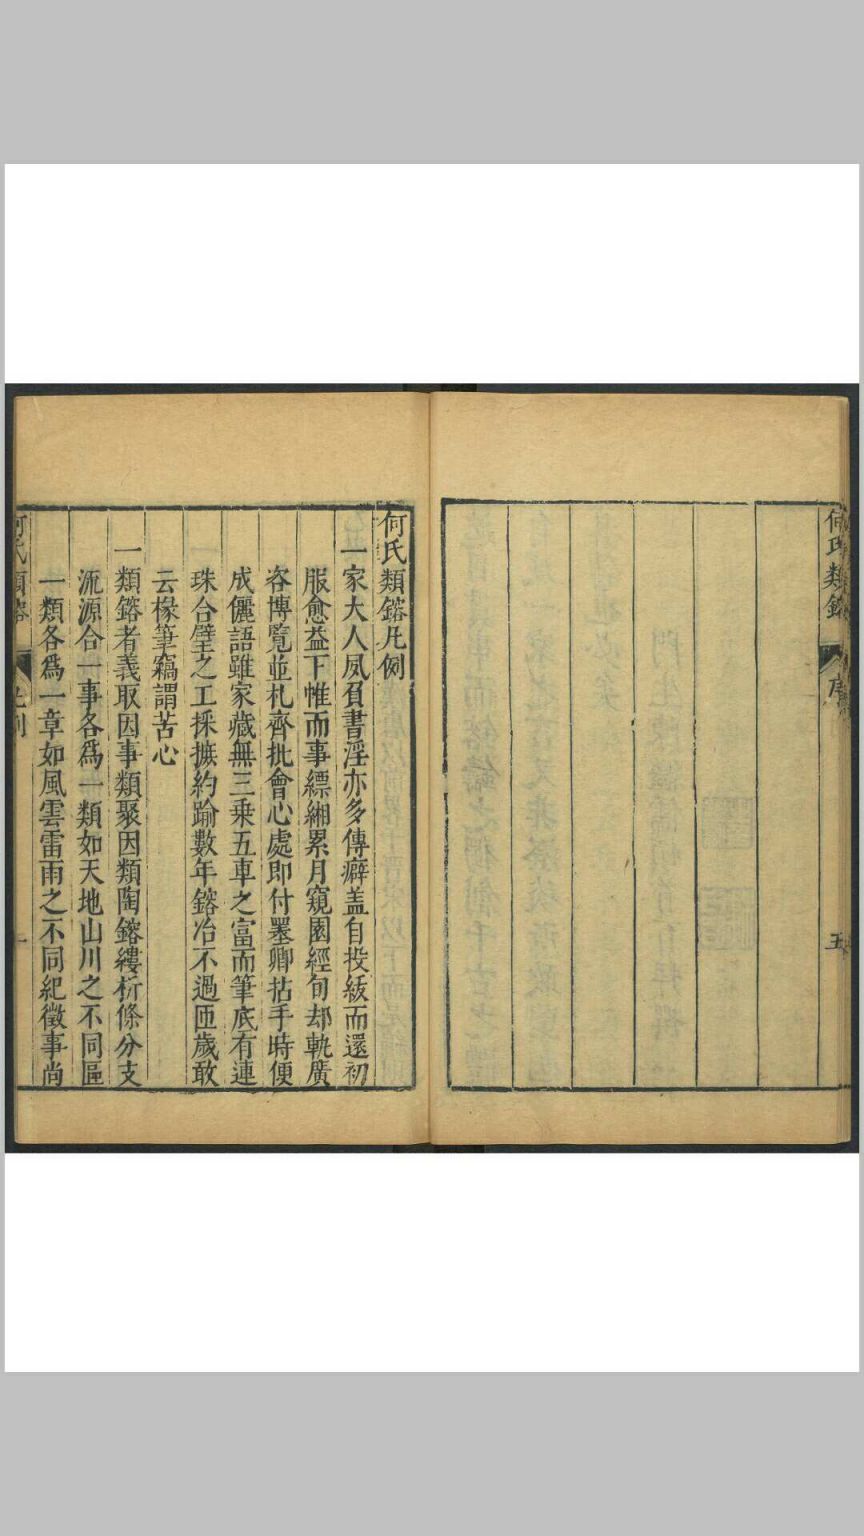 何氏類鎔
序
五
何氏類鎔凡例
一家大人夙負書淫亦多傳癖蓋自投紱而還初
服愈益下惟而事縹緗累月窺園經旬却軌廣
咨博覽並札齊批會心處即付墨卿拈手時便
成儷語雖家藏無三乗五車之富而筆底有連
珠合璧之工採摭約踰數年鎔冶不過匝歲敢
云椽筆竊謂苦心
一類鎔者義取因事類聚因類陶鎔縷析條分支
流源合一事各爲一類如天地山川之不同區
一類各爲一章如風雲雷雨之不同紀徵事尚
何氏類鎔
凡例
一